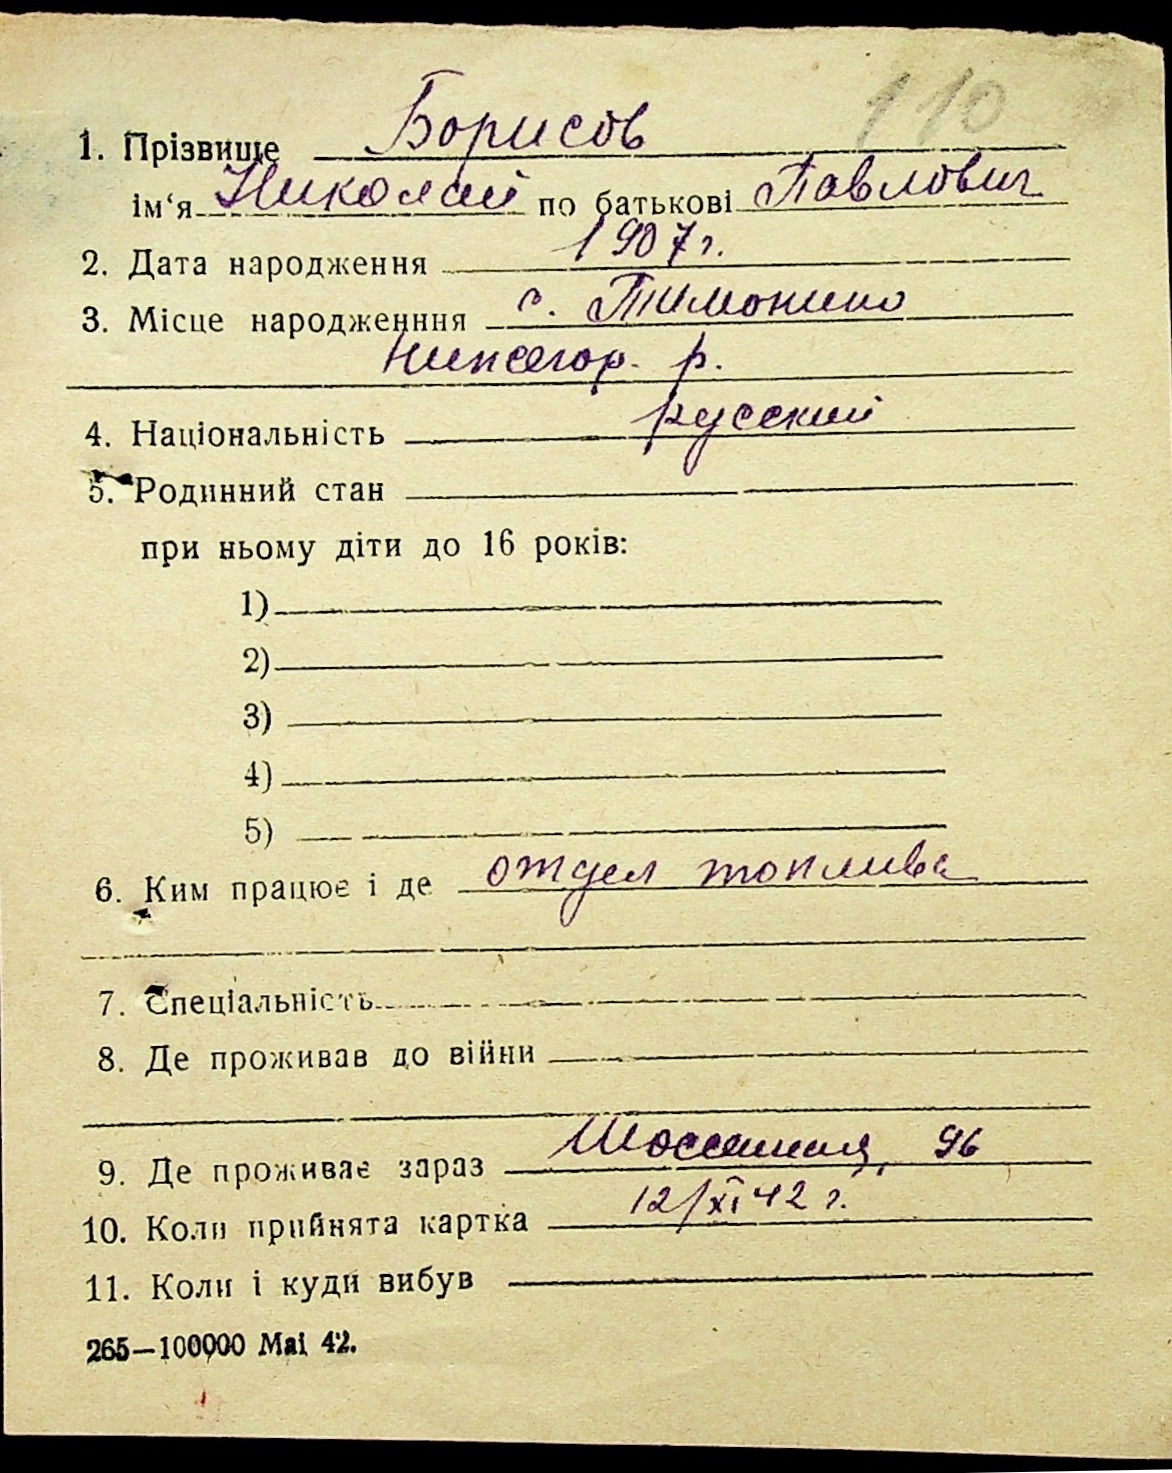 110
1. Прізвище Борисов
ім'я Николай по батькові Павлович
2. Дата народження 1907 г.
3. Місце народженння с. Тимонино
Нижегор. р.
4. Національність русский
5. Родинний стан
при ньому діти до 16 років:
1)
2)
3)
4)
5)
6. Ким працює і де отдел топлива
7. Спеціальність
8. Де проживав до війни
9. Де проживає зараз Шоссейная, 96
10. Коли прийнята картка 12/XI 42 г.
11. Коли і куди вибув
265—100000 Mai 42.